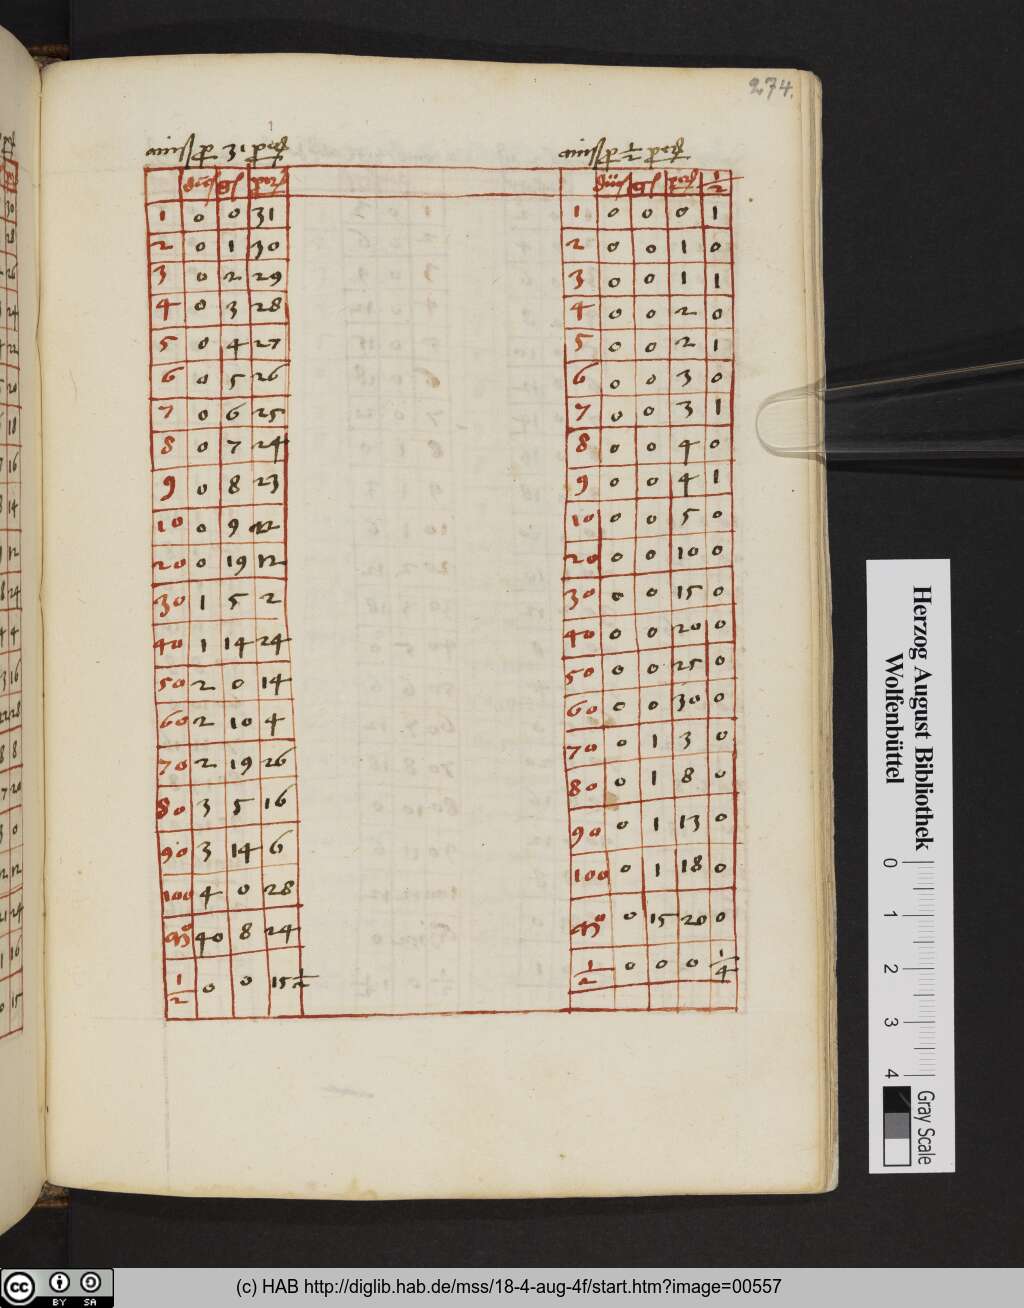 274.
31
1/2
1/2
1 0 0 31
2 0 1 30
3 0 2 29
4 0 3 28
5 0 4 27
6 0 5 26
7 0 6 25
8 0 7 24
9 0 8 23
10 0 9 22
20 0 19 12
30 1 5 2
40 1 14 24
50 2 0 14
60 2 10 4
70 2 19 26
80 3 5 16
90 3 14 6
100 4 0 28
40 8 24
1/2 0 0 15 1/2
1 0 0 0 1
2 0 0 1 0
3 0 0 1 1
4 0 0 2 0
5 0 0 2 1
6 0 0 3 0
7 0 0 3 1
8 0 0 4 0
9 0 0 4 1
10 0 0 5 0
20 0 0 10 0
30 0 0 15 0
40 0 0 20 0
50 0 0 25 0
60 0 0 30 0
70 0 1 3 0
80 0 1 8 0
90 0 1 13 0
100 0 1 18 0
0 15 20 0
1/2 0 0 0 1/4
Herzog August Bibliothek
Wolfenbüttel
0 1 2 3 4
Gray Scale
cc BY SA
(c) HAB http://diglib.hab.de/mss/18-4-aug-4f/start.htm?image=00557